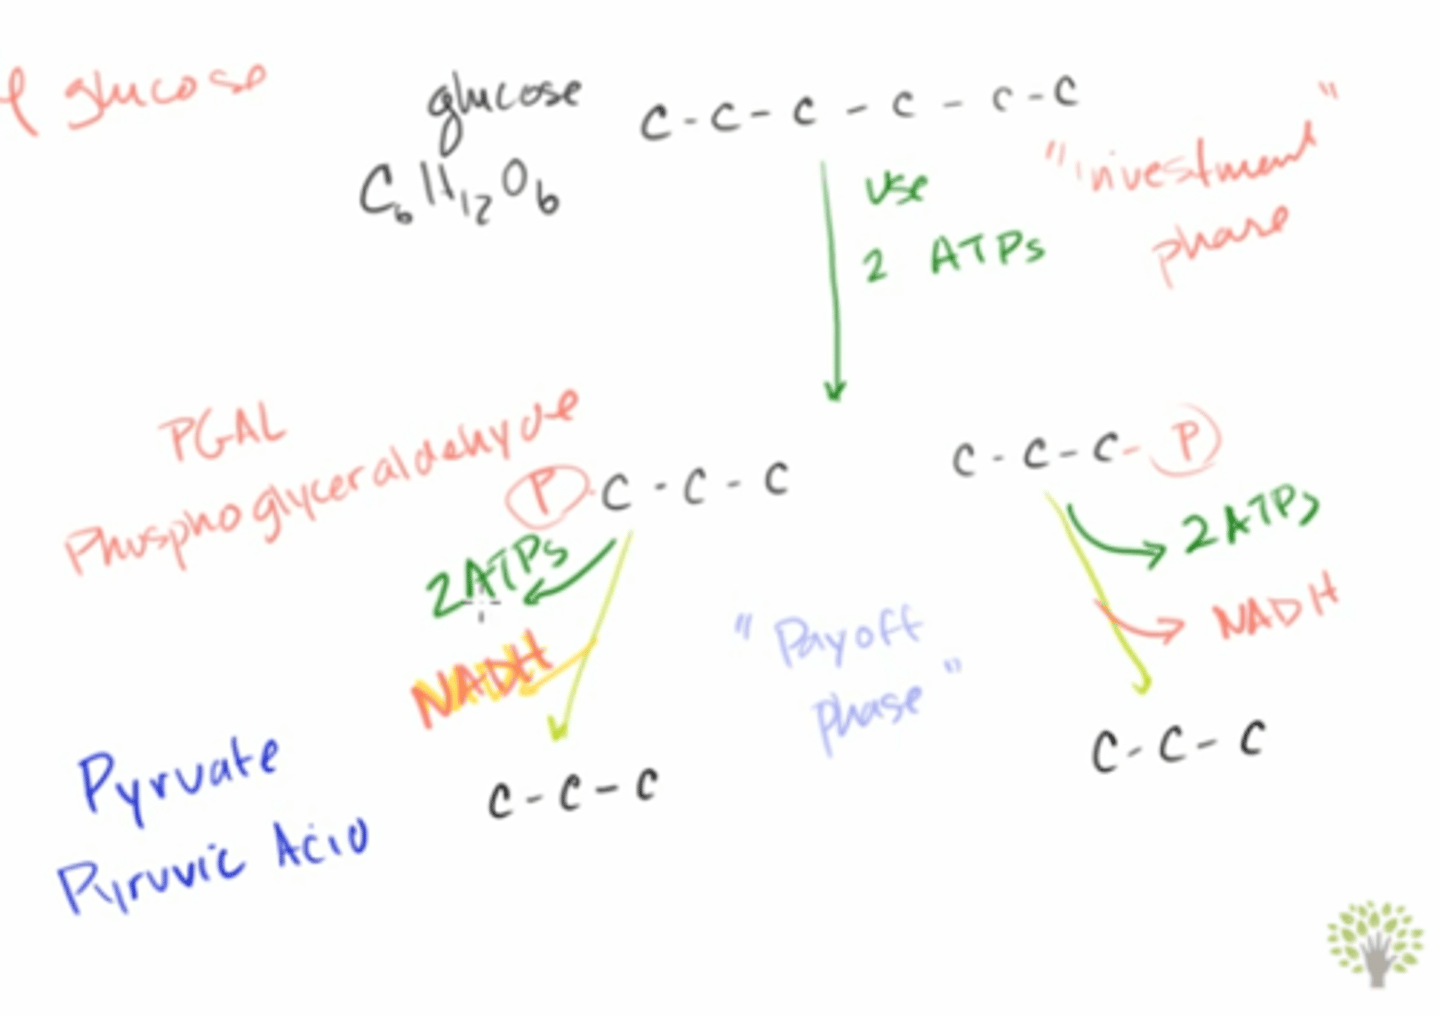 glucose
glucose
C6H12O6
C-C-C-C-C-C
use
2 ATPs
"investment"
phase
PGAL
Phosphoglyceraldehyde
P-C-C-C
C-C-C-P
2ATPs
NADH
2ATPs
NADH
"Payoff
phase"
C-C-C
C-C-C
Pyruvate
Pyruvic Acid